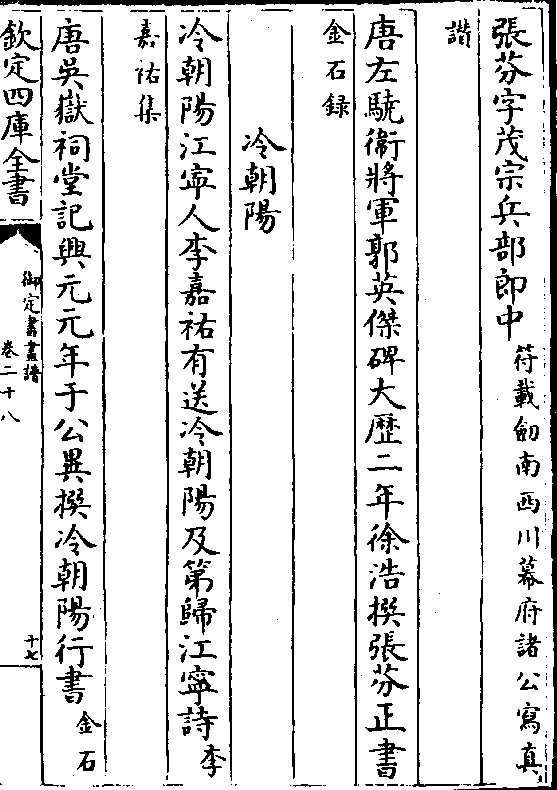 張芬字茂宗兵部郎中符載劒南西川幕府諸公寫真
讃
唐左驍衞將軍郭英傑碑大歴二年徐浩撰張芬正書
金石録
冷朝陽
冷朝陽江寧人李嘉祐有送冷朝陽及第歸江寧詩李
嘉祐集
唐吳嶽祠堂記興元元年于公異撰冷朝陽行書金石
欽定四庫全書
御定書畫譜
卷二十八
十七